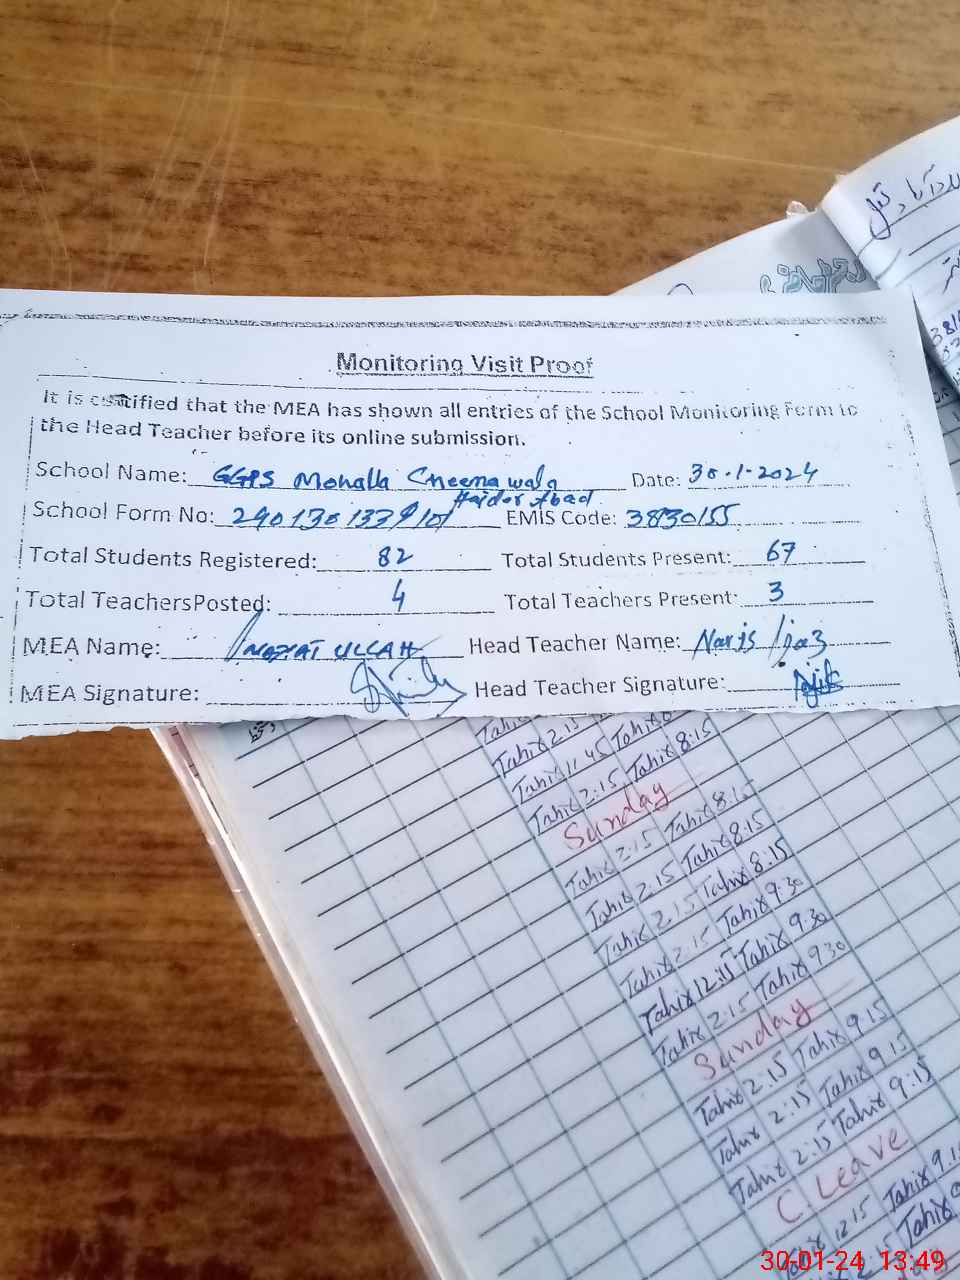 Monitoring Visit Proof
It is certified that the MEA has shown all entries of the School Monitoring Form to
the Head Teacher before its online submission.
School Name: GGPS Mohalla Cheema wala Date: 30-1-2024
Haider Abad
School Form No: EMIS Code: 3830155
Total Students Registered: 82 Total Students Present: 67
Total TeachersPosted: 4 Total Teachers Present: 3
MEA Name: INAYAT ULLAH Head Teacher Name: Ijaz
MEA Signature: Head Teacher Signature:
Tahir 2:15
Tahir 11:45 Tahir
Tahir 2:15 Tahir 8:15
Sunday
Tahir 2:15 Tahir 8:15
Tahir 2:15 Tahir 8:15
Tahir 2:15 Tahir 8:15
Tahir 2:15 Tahir 9:30
Tahir 12:15 Tahir 9:30
Tahir 2:15 Tahir 9:30
Sunday
Tahir 2:15 Tahir 9:15
Tahir 2:15 Tahir 9:15
Tahir 2:15 Tahir 9:15
C Leave
Tahir 12:15 Tahir 9:15
2:15 Tahir
30-01-24 13:49